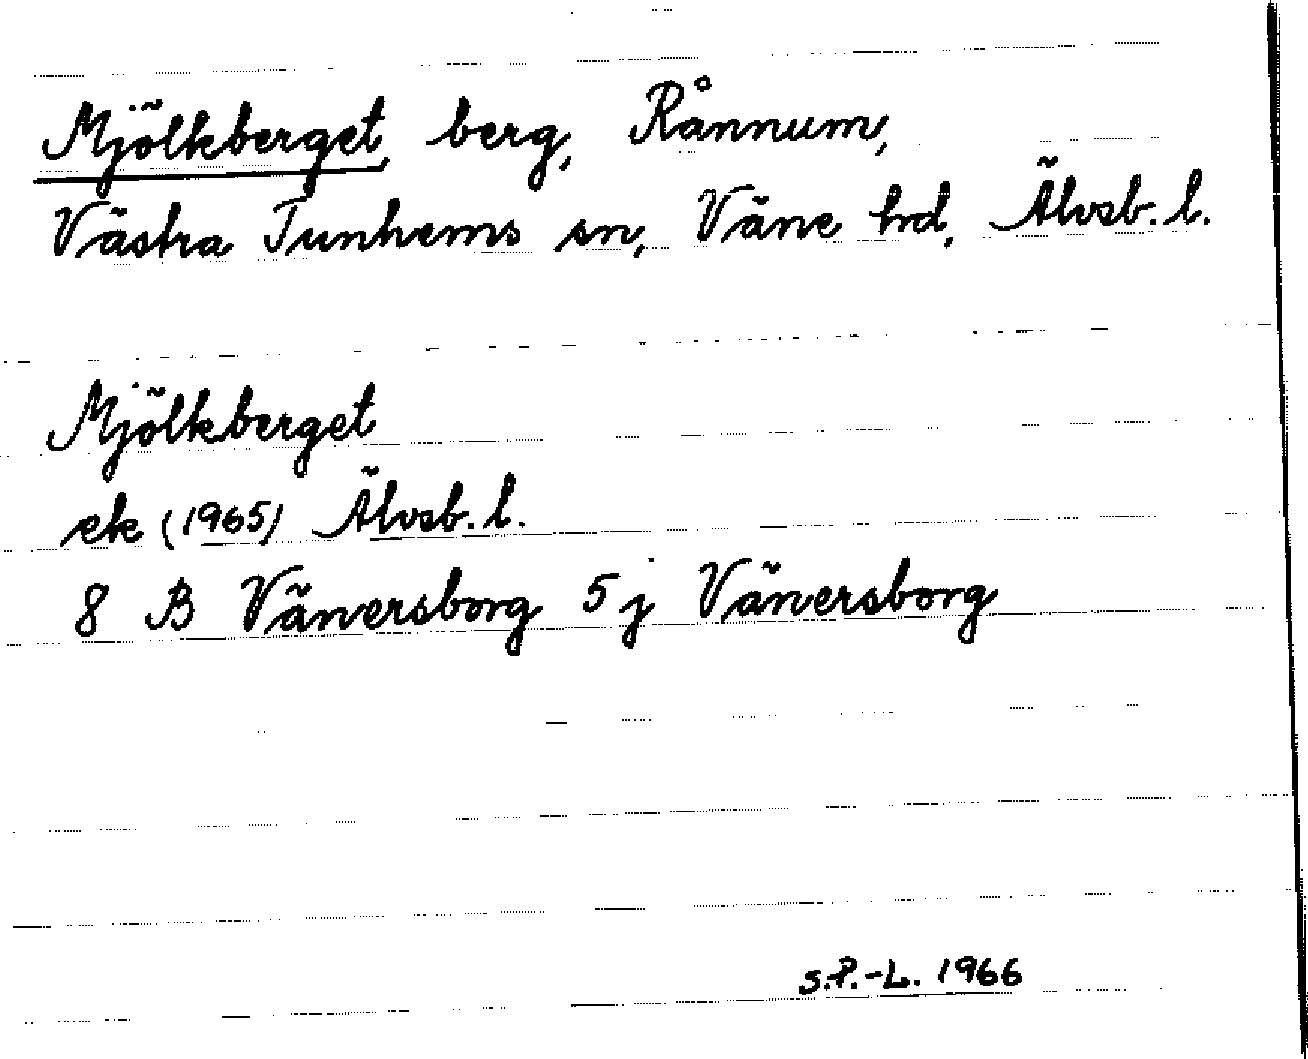 Mjölkberget, berg, Rånnum,
Västra Tunhems sn, Väne hd, Älvsb. l.
Mjölkberget
ek (1965) Älvsb. l.
8 B Vänersborg 5 j Vänersborg
S.P.-L. 1966